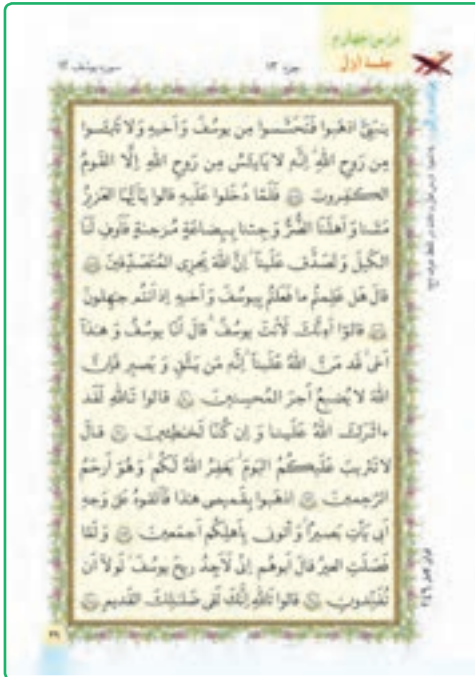 درس چهارم
جلسهٔ اول
جزء ۱۳
سورهٔ یوسف ۱۲
یٰبَنِیَّ اذهَبوا فَتَحَسَّسوا مِن یوسُفَ وَ اَخیهِ وَ لا تَایـَٔسوا
مِن رَوحِ اللهِ اِنَّه لا یَایـَٔسُ مِن رَوحِ اللهِ اِلَّا القَومُ
الکٰفِرونَ فَلَمّا دَخَلوا عَلَیهِ قالوا یٰاَیُّهَا العَزیزُ
مَسَّنا وَ اَهلَنَا الضُّرُّ وَ جِئنا بِبِضاعَةٍ مُزجٰىةٍ فَاَوفِ لَنَا
الکَیلَ وَ تَصَدَّق عَلَینا اِنَّ اللهَ یَجزِی المُتَصَدِّقینَ
قالَ هَل عَلِمتُم ما فَعَلتُم بِیوسُفَ وَ اَخیهِ اِذ اَنتُم جٰهِلونَ
قالوا اَءِنَّکَ لَاَنتَ یوسُفُ قالَ اَنَا یوسُفُ وَ هٰذا
اَخی قَد مَنَّ اللهُ عَلَینا اِنَّه مَن یَتَّقِ وَ یَصبِر فَاِنَّ
اللهَ لا یُضیعُ اَجرَ المُحسِنینَ قالوا تَاللهِ لَقَد
ءاثَرَکَ اللهُ عَلَینا وَ اِن کُنّا لَخٰطِـٔینَ قالَ
لا تَثریبَ عَلَیکُمُ الیَومَ یَغفِرُ اللهُ لَکُم وَ هُوَ اَرحَمُ
الرّٰحِمینَ اِذهَبوا بِقَمیصی هٰذا فَاَلقوهُ عَلىٰ وَجهِ
اَبی یَأتِ بَصیرًا وَ أتونی بِاَهلِکُم اَجمَعینَ وَ لَمّا
فَصَلَتِ العیرُ قالَ اَبوهُم اِنّی لَاَجِدُ ریحَ یوسُفَ لَولا اَن
تُفَنِّدونِ قالوا تَاللهِ اِنَّکَ لَفی ضَلٰلِکَ القَدیمِ